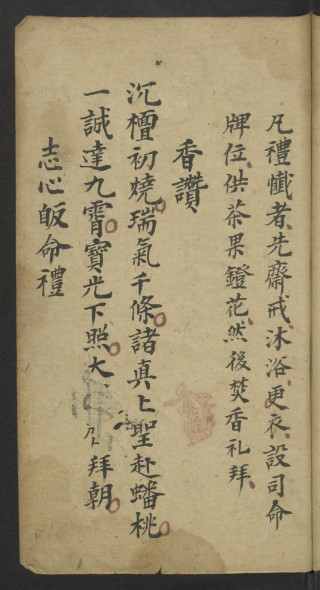 凡禮懺者先齋戒沐浴更衣設司命
牌位供茶果鐙花然後焚香礼拜
香讚
沉檀初燒瑞氣千條諸真上聖赴蟠桃
一誠達九霄寶光下照大 拜朝
志心皈命禮